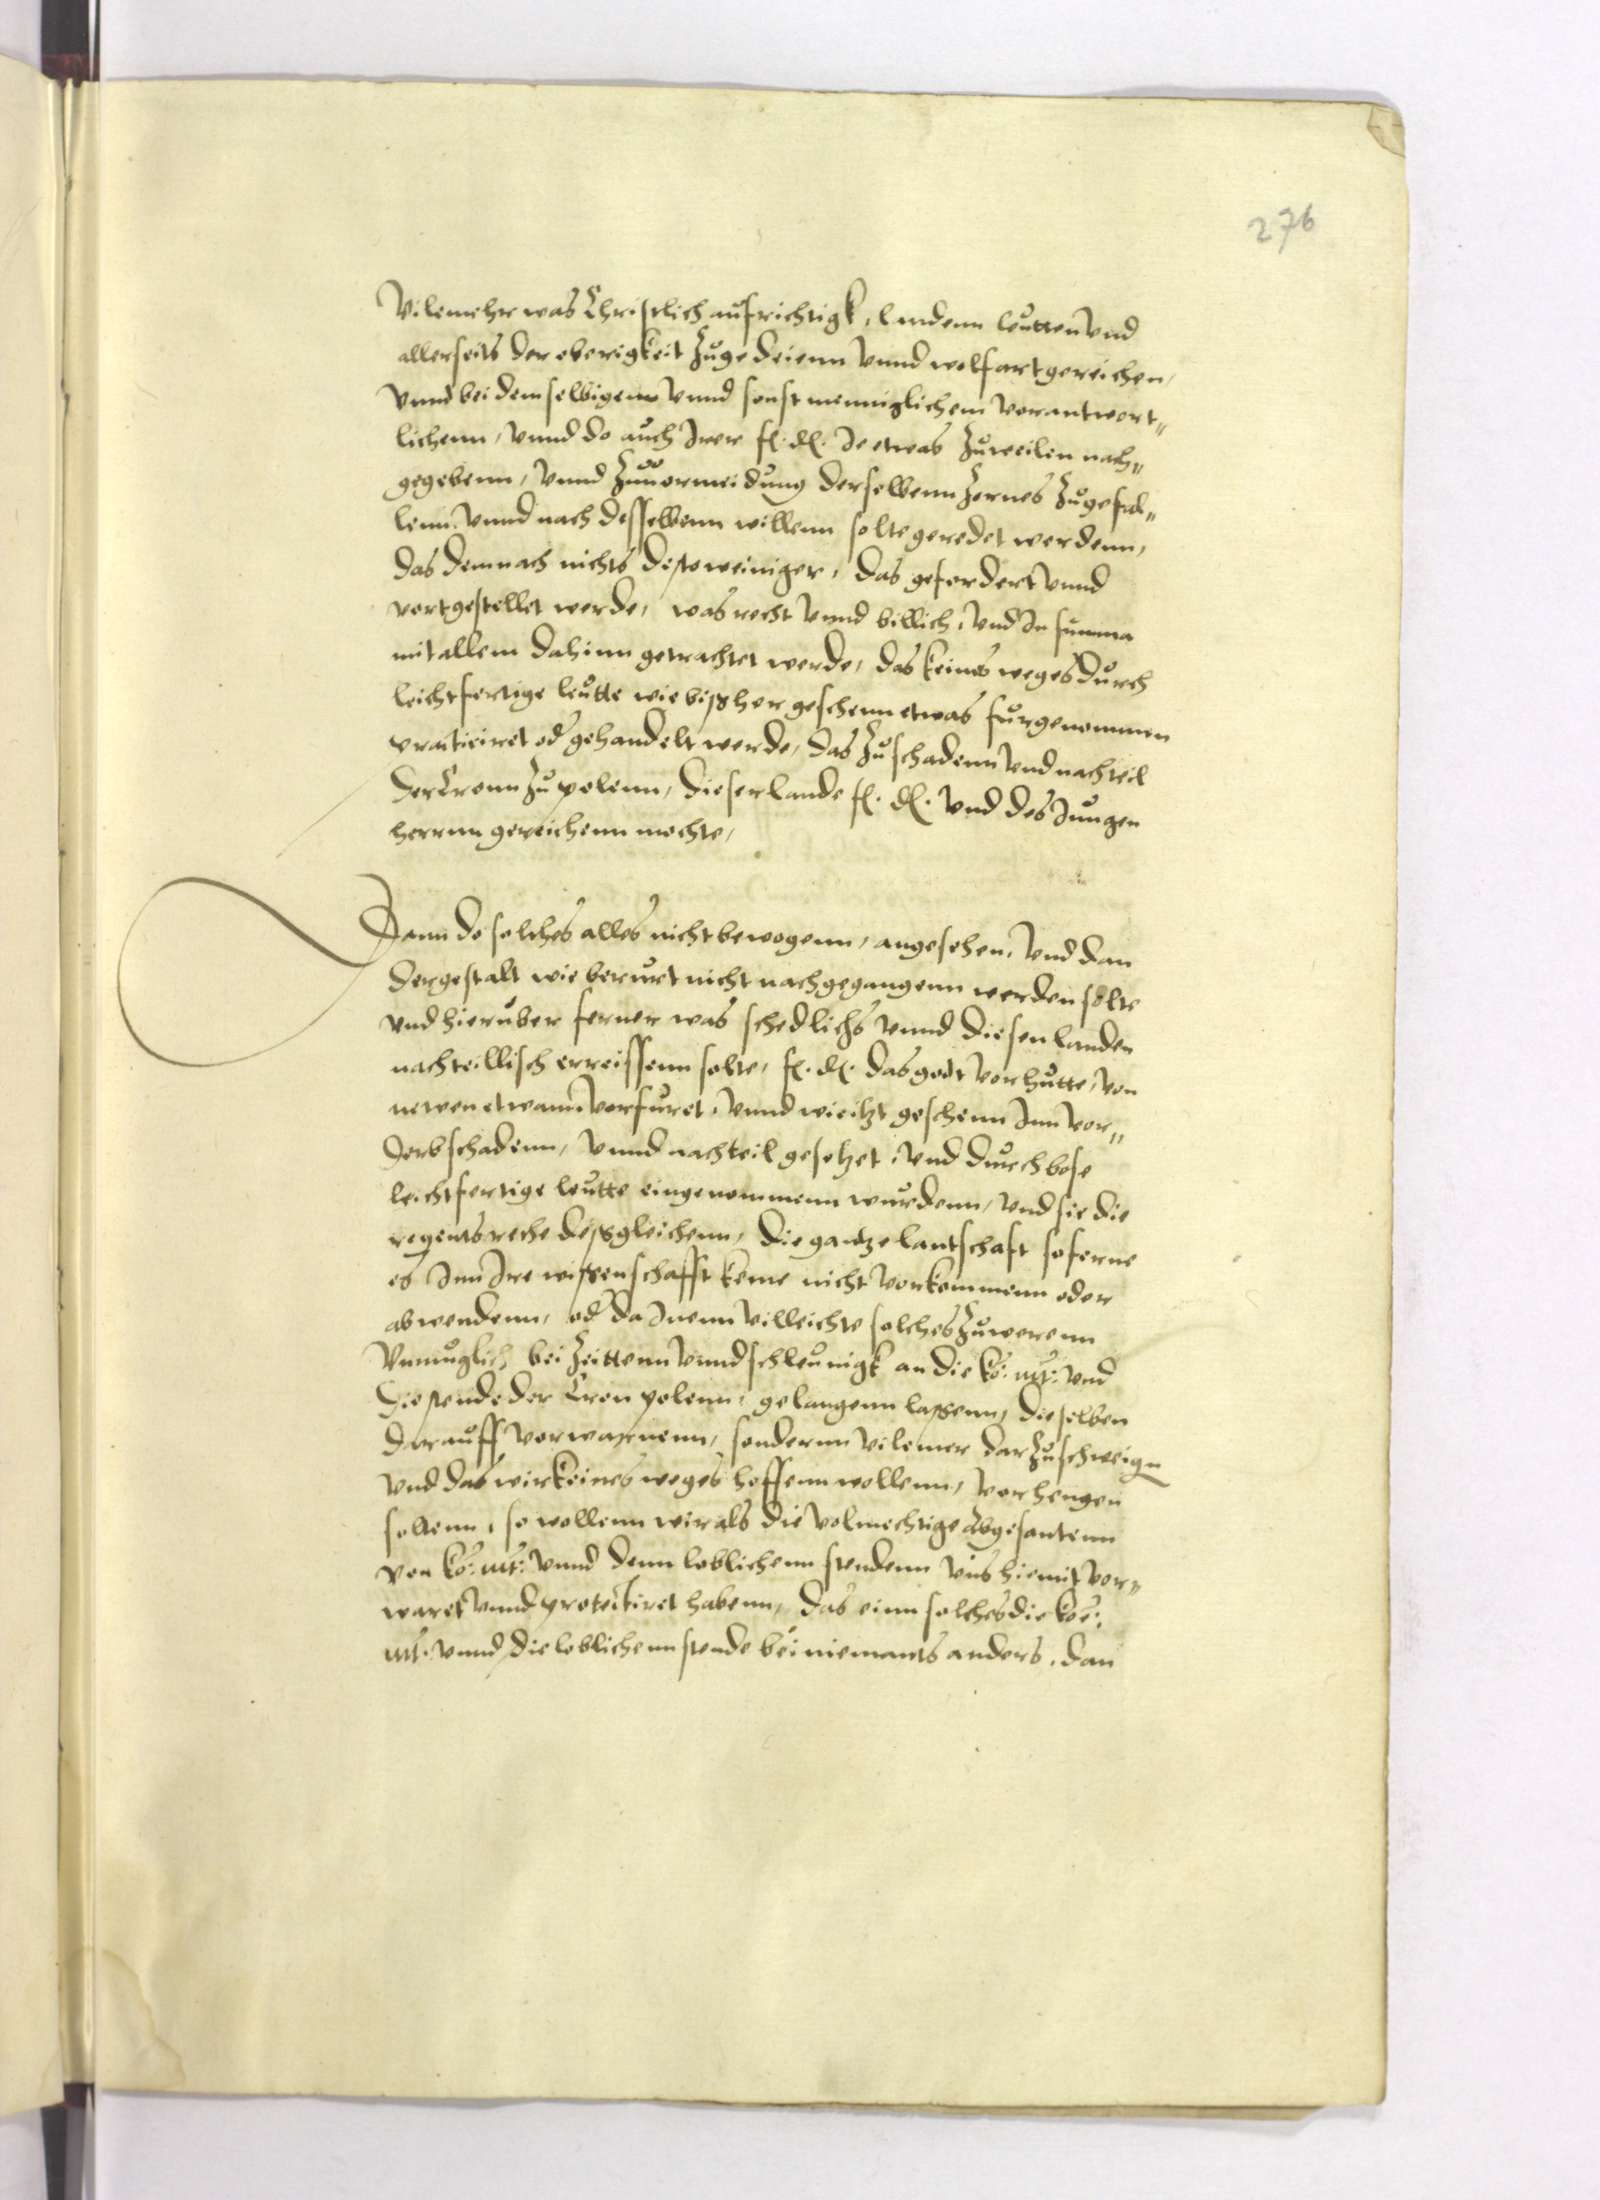 276
Vilemehr was Christlich aufrichtigk, landenn leutten vnd
allerseits der oberigkeit zugedeienn vnnd wolfart gereichen,
vnnd bei demselbigenn vnnd sonst menniglichem verantwort„
lichenn, vnnd do auch Irer fl. dl. Je etwas zuweilen nach„
gegebenn, vnnd zuuormeidung derselbenn zornes zugefal„
lenn vnnd nach desselbenn willenn solte geredet werdenn,
das demnach nichts destoweiniger, das gefordert vnnd
vortgestellet werde, was recht vnnd billich, vnd In summa
mit allem dahinn getrachtet werde, das keines weges durch
leichtfertige leutte wie bissher geschenn etwas furgenommen
practiciret od gehandelt werde, das zu schadenn vnd nachteil
der Cronn zu polenn, dieser lande fl. dl. vnd des Jungen
herrnn gereichenn mochte,
Dann do solches alles nicht bewogenn, angesehen, vnd dan
dergestalt wie berurt nicht nachgegangenn werden solte
vnd hieruber ferner was schedlichs vnnd diesen landen
nachteillisch erreissenn solte, fl. dl. das gott vorhutte, von
newen etwann vorfuret, vnnd wie itzt geschenn Inn vor„
derb schadenn, vnnd nachteil gesetzet, vnd durch bose
leichtfertige leutte eingenommenn wurdenn, vnd sie die
regentsrethe dessgleichenn, die gantze lantschaft soferne
es Inn Ire wissenschafft keme nicht vorkommenn oder
abwendenn, od da Inenn villeichte solches zuwerenn
Vnmuglich bei zeittenn vnnd schleunigk an die ko: mt: vnd
die stende der Cron polenn, gelangenn lassenn, dieselben
darauff vorwarnenn, sondernn vilemer darzu schweign
vnd das wir keines weges hoffenn wollenn, vorhengen
soltenn, so wollenn wir als die volmechtige abgesantenn
von ko: mt: vnnd denn loblichenn stendenn vns hiemit vor„
waret vnnd protestiret habenn, das einn solches die koe:
mt: vnnd die loblichenn stende bei niemants anders, dan